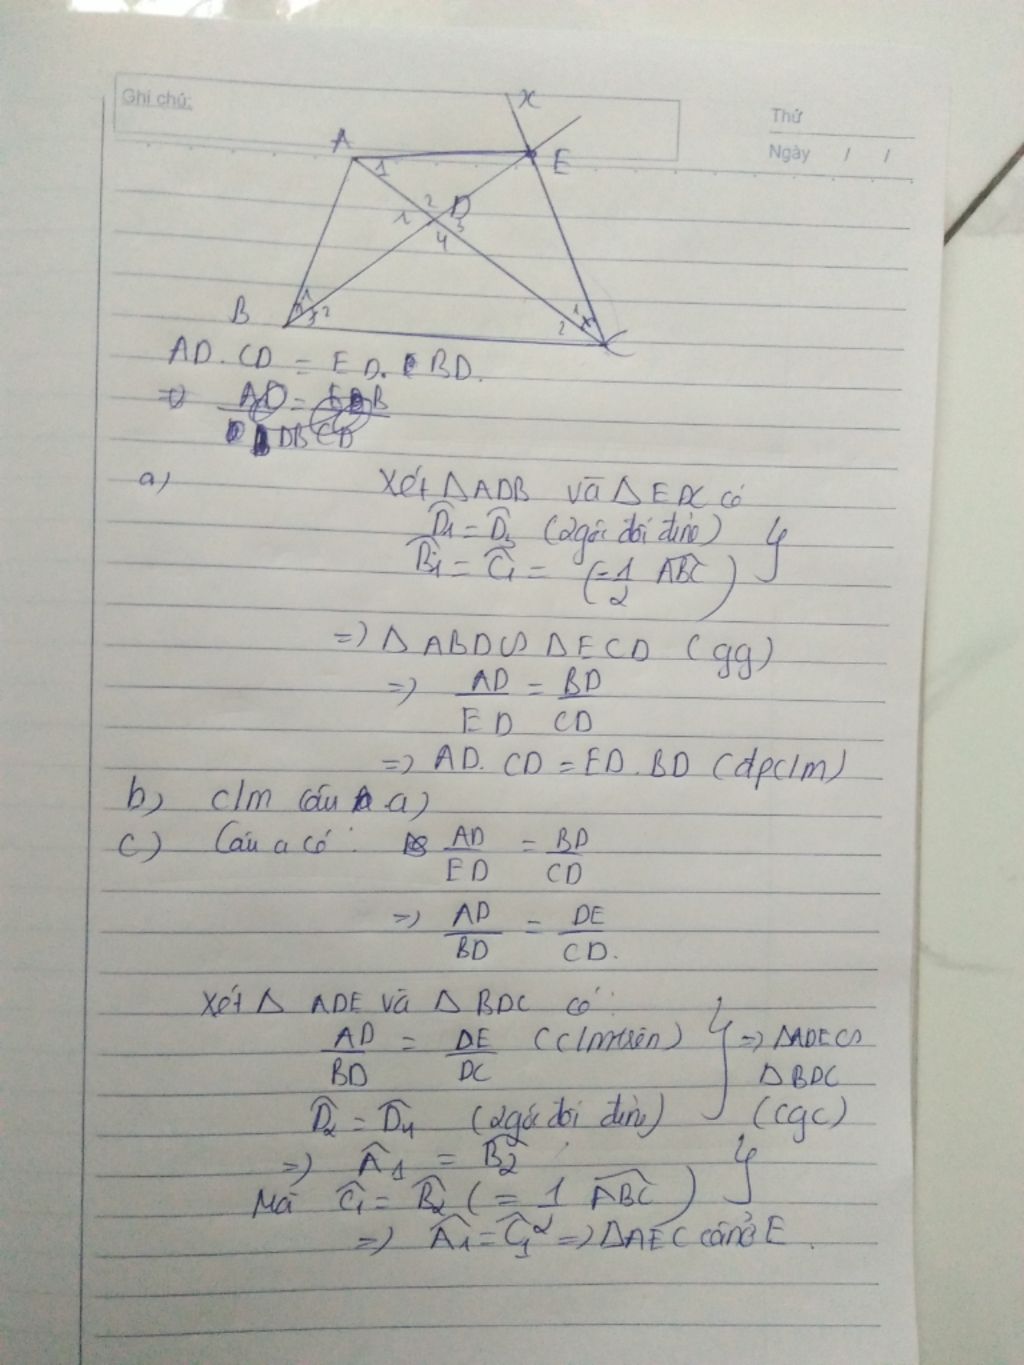 Ghi chú:
Thứ
Ngày / /
x
A
E
1
2
D
1
3
4
B
1
2
1
2
C
AD. CD = ED. BD.
=> AD = EDB
DB CD
a) Xét △ADB và △EDC có
D̂1 = D̂3 (2 góc đối đỉnh) }
B̂1 = Ĉ1 = (= 1/2 ABC)
=> △ABD ∽ △ECD (gg)
=> AD/ED = BD/CD
=> AD. CD = ED. BD (đpc/m)
b) c/m câu a)
c) Câu a có: AD/ED = BD/CD
=> AD/BD = DE/CD.
Xét △ ADE và △ BDC có:
AD/BD = DE/DC (c/m trên) } => △ADE ∽
△BDC
D̂2 = D̂4 (2 góc đối đỉnh) (cgc)
=> Â1 = B̂2 }
Mà Ĉ1 = B̂2 (= 1/2 ABC)
=> Â1 = Ĉ1 => △AEC cân ở E.